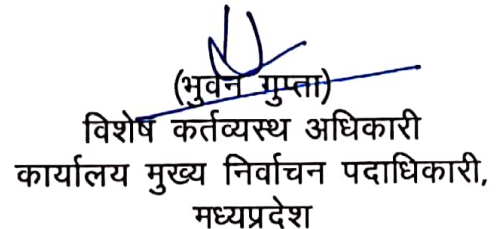 (भुवन गुप्ता)
विशेष कर्तव्यस्थ अधिकारी
कार्यालय मुख्य निर्वाचन पदाधिकारी,
मध्यप्रदेश